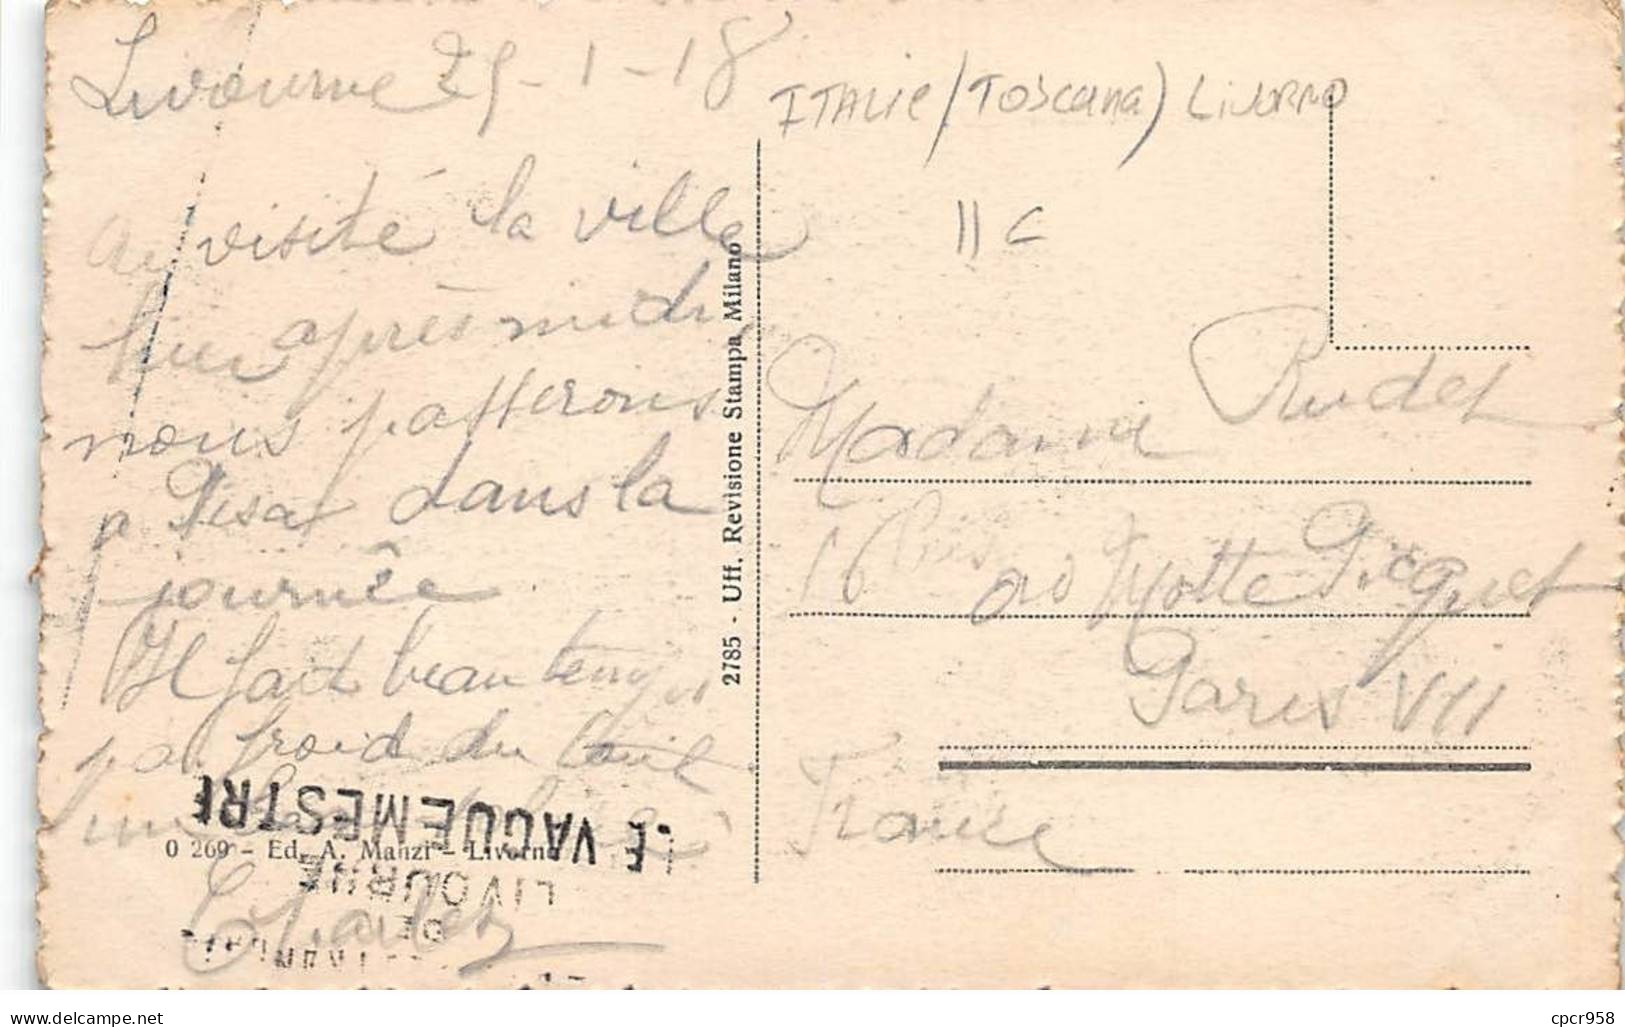 Livourne 25-1-18
ai visité la ville
hier après midi
nous passerons
a Pisa dans la
journée
Il fait beau temps
pas froid du tout
Charles
LE VAGUEMESTRE
LIVOURNE
DE
0 269 - Ed. A. Manzi - Livorno
2785 - Uff. Revisione Stampa Milano
ITALIE / (Toscana) Livorno
11 C
Madame Rudel
16 bis av Motte Picquet
Paris VII
France
cpcr958